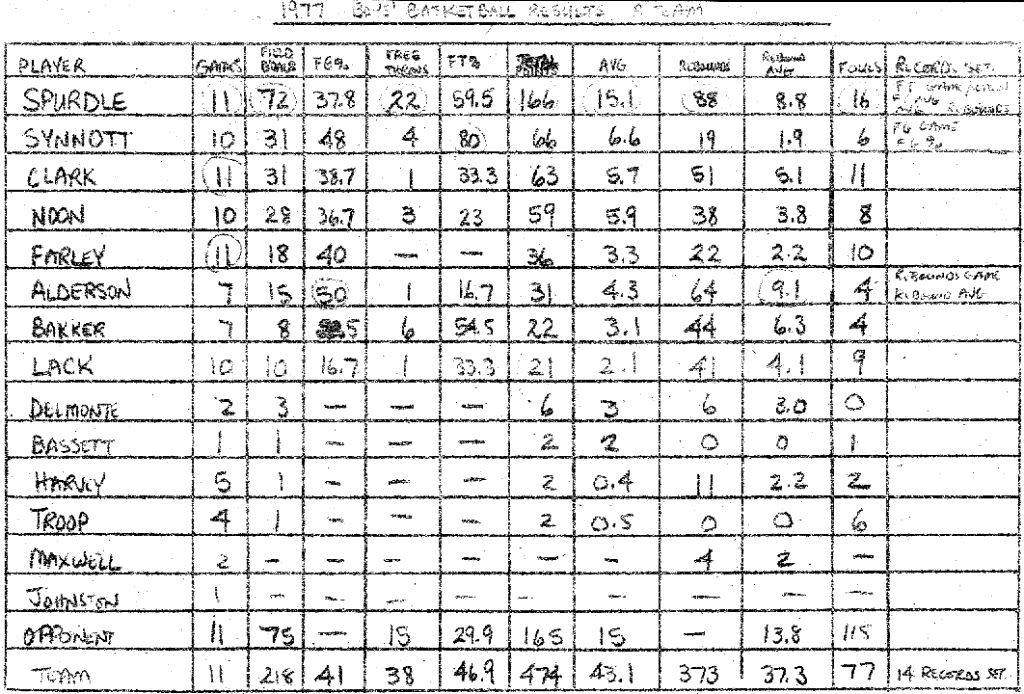 1977 BOYS' BASKETBALL RESULTS A TEAM
PLAYER GAMES FIELD GOALS FG% FREE THROWS FT% TOTAL POINTS AVG REBOUNDS REBOUND AVG FOULS RECORDS SET
SPURDLE 11 72 37.8 22 59.5 166 15.1 88 8.8 16 FT GAME AVG REBOUNDS
SYNNOTT 10 31 48 4 80 66 6.6 19 1.9 6 FG GAME FG %
CLARK 11 31 38.7 1 33.3 63 5.7 51 5.1 11
NOON 10 28 36.7 3 23 59 5.9 38 3.8 8
FARLEY 11 18 40 — — 36 3.3 22 2.2 10
ALDERSON 7 15 50 1 16.7 31 4.3 64 9.1 4 REBOUNDS GAME REBOUND AVG
BAKKER 7 8 6 54.5 22 3.1 44 6.3 4
LACK 10 10 16.7 1 33.3 21 2.1 41 4.1 9
DELMONTE 2 3 — — — 6 3 6 3.0 0
BASSETT 1 1 — — — 2 2 0 0 1
HARVEY 5 1 — — — 2 0.4 11 2.2 2
TROOP 4 1 — — — 2 0.5 0 0 6
MAXWELL 2 — — — — — — 4 2 —
JOHNSTON 1 — — — — — — — — —
OPPONENT 11 75 — 15 29.9 165 15 — 13.8 115
TEAM 11 218 41 38 46.9 474 43.1 373 37.3 77 14 RECORDS SET